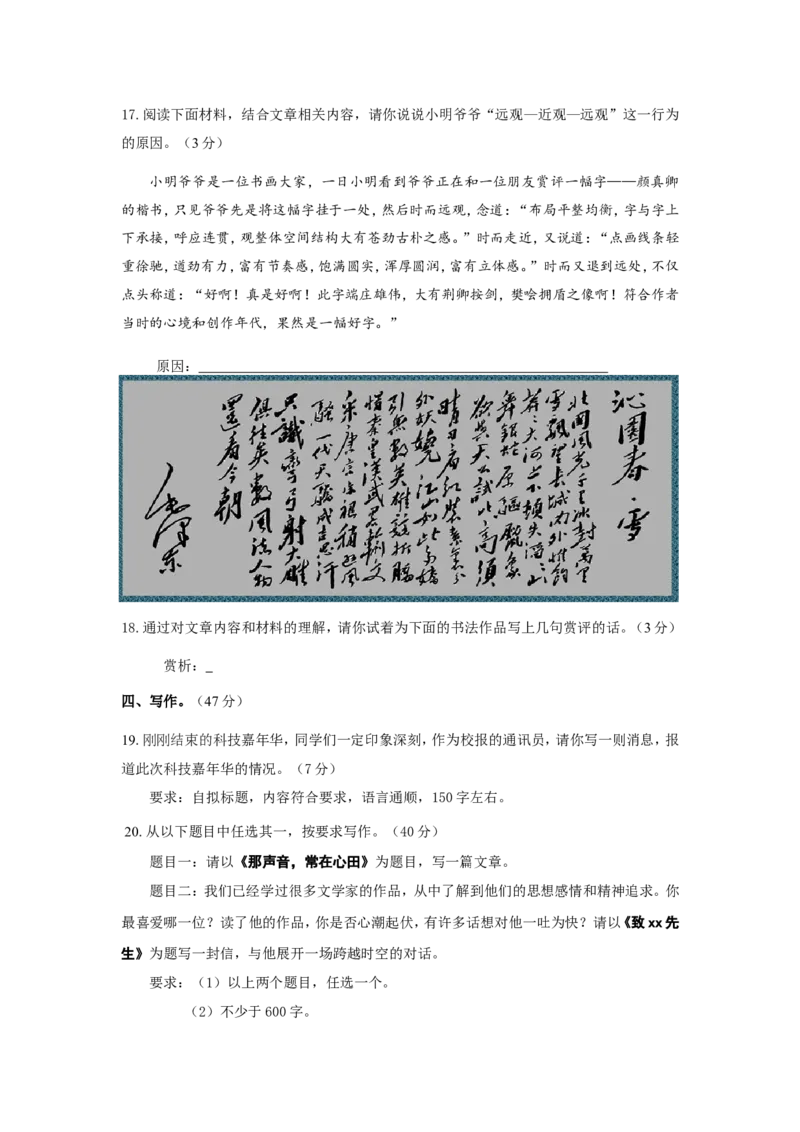 17. 阅读下面材料，结合文章相关内容，请你说说小明爷爷“远观—近观—远观”这一行为
的原因。（3 分）
小明爷爷是一位书画大家，一日小明看到爷爷正在和一位朋友赏评一幅字——颜真卿
的楷书，只见爷爷先是将这幅字挂于一处，然后时而远观，念道：“布局平整均衡，字与字上
下承接，呼应连贯，观整体空间结构大有苍劲古朴之感。”时而走近，又说道：“点画线条轻
重徐驰，道劲有力，富有节奏感，饱满圆实，浑厚圆润，富有立体感。”时而又退到远处，不仅
点头称道：“好啊！真是好啊！此字端庄雄伟，大有荆卿按剑，樊哙拥盾之像啊！符合作者
当时的心境和创作年代，果然是一幅好字。”
原因：
沁园春·雪
北国风光千里冰封万里
雪飘望长城内外惟余
莽莽大河上下顿失滔滔山
舞银蛇原驱腊象
欲与天公试比高须
晴日看红装素裹分
外妖娆江山如此多娇
引无数英雄竞折腰
惜秦皇汉武略输文
采唐宗宋祖稍逊风
骚一代天骄成吉思汗
只识弯弓射大雕
俱往矣数风流人物
还看今朝
毛泽东
18. 通过对文章内容和材料的理解，请你试着为下面的书法作品写上几句赏评的话。（3 分）
赏析：_
四、写作。（47 分）
19. 刚刚结束的科技嘉年华，同学们一定印象深刻，作为校报的通讯员，请你写一则消息，报
道此次科技嘉年华的情况。（7 分）
要求：自拟标题，内容符合要求，语言通顺，150 字左右。
20. 从以下题目中任选其一，按要求写作。（40 分）
题目一：请以《那声音，常在心田》为题目，写一篇文章。
题目二：我们已经学过很多文学家的作品，从中了解到他们的思想感情和精神追求。你
最喜爱哪一位？读了他的作品，你是否心潮起伏，有许多话想对他一吐为快？请以《致 xx 先
生》为题写一封信，与他展开一场跨越时空的对话。
要求：（1）以上两个题目，任选一个。
（2）不少于 600 字。